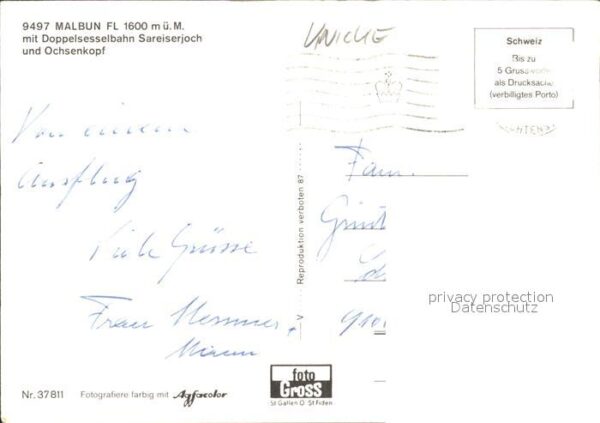 9497 MALBUN FL 1600 m ü. M.
mit Doppelsesselbahn Sareiserjoch
und Ochsenkopf
Schweiz
Bis zu
5 Gruss
als Drucksache
(verbilligtes Porto)
Von einem
Ausflug
Viele Grüsse
Frau
Fam.
Reproduktion verboten 87
V
privacy protection
Datenschutz
foto
Gross
St Gallen O St Fiden
Nr. 37811 Fotografiere farbig mit Agfacolor